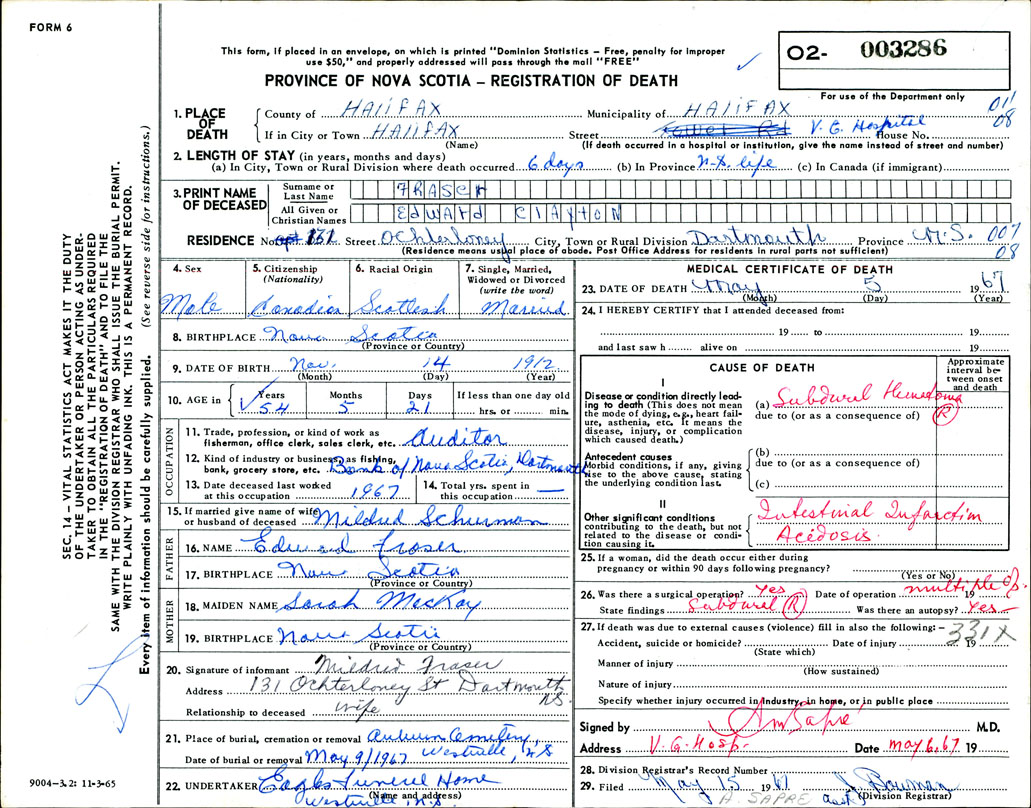 FORM 6
This form, if placed in an envelope, on which is printed "Dominion Statistics – Free, penalty for improper
use $50," and properly addressed will pass through the mail "FREE"
O2- 003286
PROVINCE OF NOVA SCOTIA – REGISTRATION OF DEATH
For use of the Department only
011
08
1. PLACE OF DEATH
County of HAliFAX Municipality of HAliFAX
If in City or Town HAliFAX Street V. G. Hospital House No.
(Name) (If death occurred in a hospital or institution, give the name instead of street and number)
2. LENGTH OF STAY (in years, months and days)
(a) In City, Town or Rural Division where death occurred 6 days (b) In Province N.S. life (c) In Canada (if immigrant)
3. PRINT NAME OF DECEASED
Surname or Last Name FRASER
All Given or Christian Names EDWARD CLAYTON
RESIDENCE No. apt 131 Street Ochterloney City, Town or Rural Division Dartmouth Province N.S. 007
08
(Residence means usual place of abode. Post Office Address for residents in rural parts not sufficient)
4. Sex 5. Citizenship (Nationality) 6. Racial Origin 7. Single, Married, Widowed or Divorced (write the word)
Male Canadian Scottish Married
8. BIRTHPLACE Nova Scotia
(Province or Country)
9. DATE OF BIRTH Nov. 14 1912
(Month) (Day) (Year)
10. AGE in Years Months Days If less than one day old
54 5 21 hrs. or min.
OCCUPATION
11. Trade, profession, or kind of work as
fisherman, office clerk, sales clerk, etc. Auditor
12. Kind of industry or business as fishing,
bank, grocery store, etc. Bank of Nova Scotia, Dartmouth
13. Date deceased last worked
at this occupation 1967
14. Total yrs. spent in
this occupation —
15. If married give name of wife
or husband of deceased Mildred Schurman
FATHER
16. NAME Edward Fraser
17. BIRTHPLACE Nova Scotia
(Province or Country)
MOTHER
18. MAIDEN NAME Sarah MacKay
19. BIRTHPLACE Nova Scotia
(Province or Country)
20. Signature of informant Mildred Fraser
Address 131 Ochterloney St Dartmouth
NS.
Relationship to deceased wife
21. Place of burial, cremation or removal Auburn Cemetery,
Westville, NS
Date of burial or removal May 9/1967
22. UNDERTAKER Eagles Funeral Home
(Name and address)
Westville N.S
MEDICAL CERTIFICATE OF DEATH
23. DATE OF DEATH May 5 1967
(Month) (Day) (Year)
24. I HEREBY CERTIFY that I attended deceased from:
19 to 19
and last saw h alive on 19
CAUSE OF DEATH
Approximate interval between onset and death
I
Disease or condition directly leading to death (This does not mean the mode of dying, e.g., heart failure, asthenia, etc. It means the disease, injury, or complication which caused death.)
(a) Subdural Hematoma
due to (or as a consequence of) (R)
Antecedent causes
Morbid conditions, if any, giving rise to the above cause, stating the underlying condition last.
(b)
due to (or as a consequence of)
(c)
II
Other significant conditions contributing to the death, but not related to the disease or condition causing it.
Intestinal Infarction
Acidosis
25. If a woman, did the death occur either during
pregnancy or within 90 days following pregnancy?
(Yes or No)
26. Was there a surgical operation? Yes Date of operation multiple op. 19
State findings Subdural (R) Was there an autopsy? Yes –
27. If death was due to external causes (violence) fill in also the following: –
331X
Accident, suicide or homicide? Date of injury 19
(State which)
Manner of injury
(How sustained)
Nature of injury
Specify whether injury occurred in industry, in home, or in public place
Signed by A M Sapre M.D.
Address V.G. Hosp. Date May 6, 67 19
28. Division Registrar's Record Number
29. Filed May 15 1967 J. Bowman
(Division Registrar)
A. SAPRE asst
SEC. 14 – VITAL STATISTICS ACT MAKES IT THE DUTY
OF THE UNDERTAKER OR PERSON ACTING AS UNDER-
TAKER TO OBTAIN ALL THE PARTICULARS REQUIRED
IN THE "REGISTRATION OF DEATH" AND TO FILE THE
SAME WITH THE DIVISION REGISTRAR WHO SHALL ISSUE THE BURIAL PERMIT.
WRITE PLAINLY WITH UNFADING INK. THIS IS A PERMANENT RECORD.
Every item of information should be carefully supplied. (See reverse side for instructions.)
9004–3.2: 11-3-65